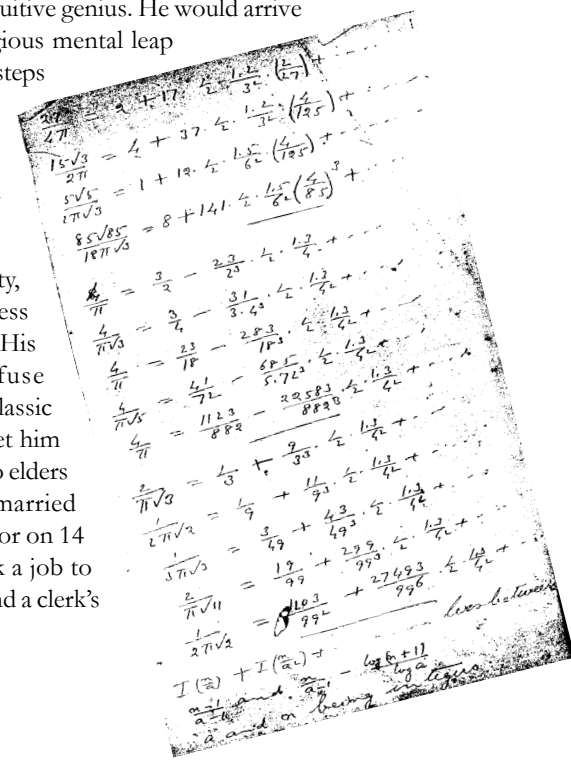 uitive genius. He would arrive
gious mental leap
steps
ty,
ess
His
fuse
lassic
et him
o elders
married
or on 14
k a job to
nd a clerk's
27/4π = 2 + 17 · 1/2 · 1.2/3² · (2/27) + ...
15√3/2π = 4 + 37 · 1/2 · 1.2/3² · (4/125) + ...
5√5/2π√3 = 1 + 12 · 1/2 · 1.5/6² · (4/125) + ...
85√85/18π√3 = 8 + 141 · 1/2 · 1.5/6² (4/85)³ + ...
4/π = 3/2 − 23/2³ · 1/2 · 1.3/4² + ...
4/π√3 = 3/4 − 31/3.4³ · 1/2 · 1.3/4² + ...
4/π = 23/18 − 283/18³ · 1/2 · 1.3/4² + ...
4/π√5 = 41/72 − 685/5.72³ · 1/2 · 1.3/4² + ...
4/π = 1123/882 − 22583/882³ · 1/2 · 1.3/4² + ...
2/π√3 = 1/3 + 9/3³ · 1/2 · 1.3/4² + ...
1/2π√2 = 1/9 + 11/9³ · 1/2 · 1.3/4² + ...
1/3π√3 = 3/49 + 43/49³ · 1/2 · 1.3/4² + ...
2/π√11 = 19/99 + 299/99³ · 1/2 · 1.3/4² + ...
1/2π√2 = 1103/99² + 27493/99⁶ · 1/2 · 1.3/4² + ...
I(n/a) + I(n/a²) + ... lies between
n−1/a−1 and n/a−1 − log(n+1)/log a
a and n being integers